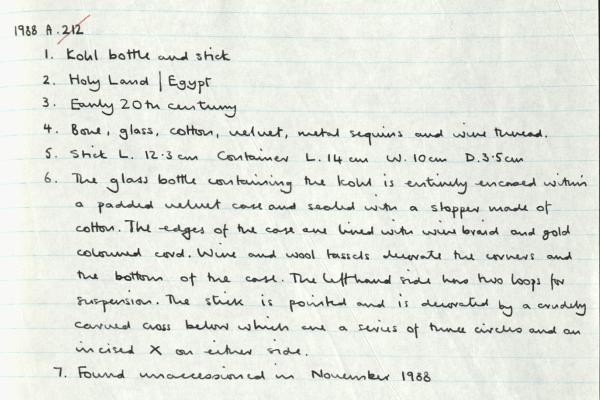 1988 A.212
1. Kohl bottle and stick
2. Holy Land | Egypt
3. Early 20th century
4. Bone, glass, cotton, velvet, metal sequins and wire thread.
5. Stick L. 12.3 cm Container L. 14 cm W. 10cm D. 3.5cm
6. The glass bottle containing the kohl is entirely encased within
a padded velvet case and sealed with a stopper made of
cotton. The edges of the case are lined with wire braid and gold
coloured cord. Wire and wool tassels decorate the corners and
the bottom of the case. The lefthand side has two loops for
suspension. The stick is pointed and is decorated by a crudely
carved cross below which are a series of three circles and an
incised X on either side.
7. Found unaccessioned in November 1988